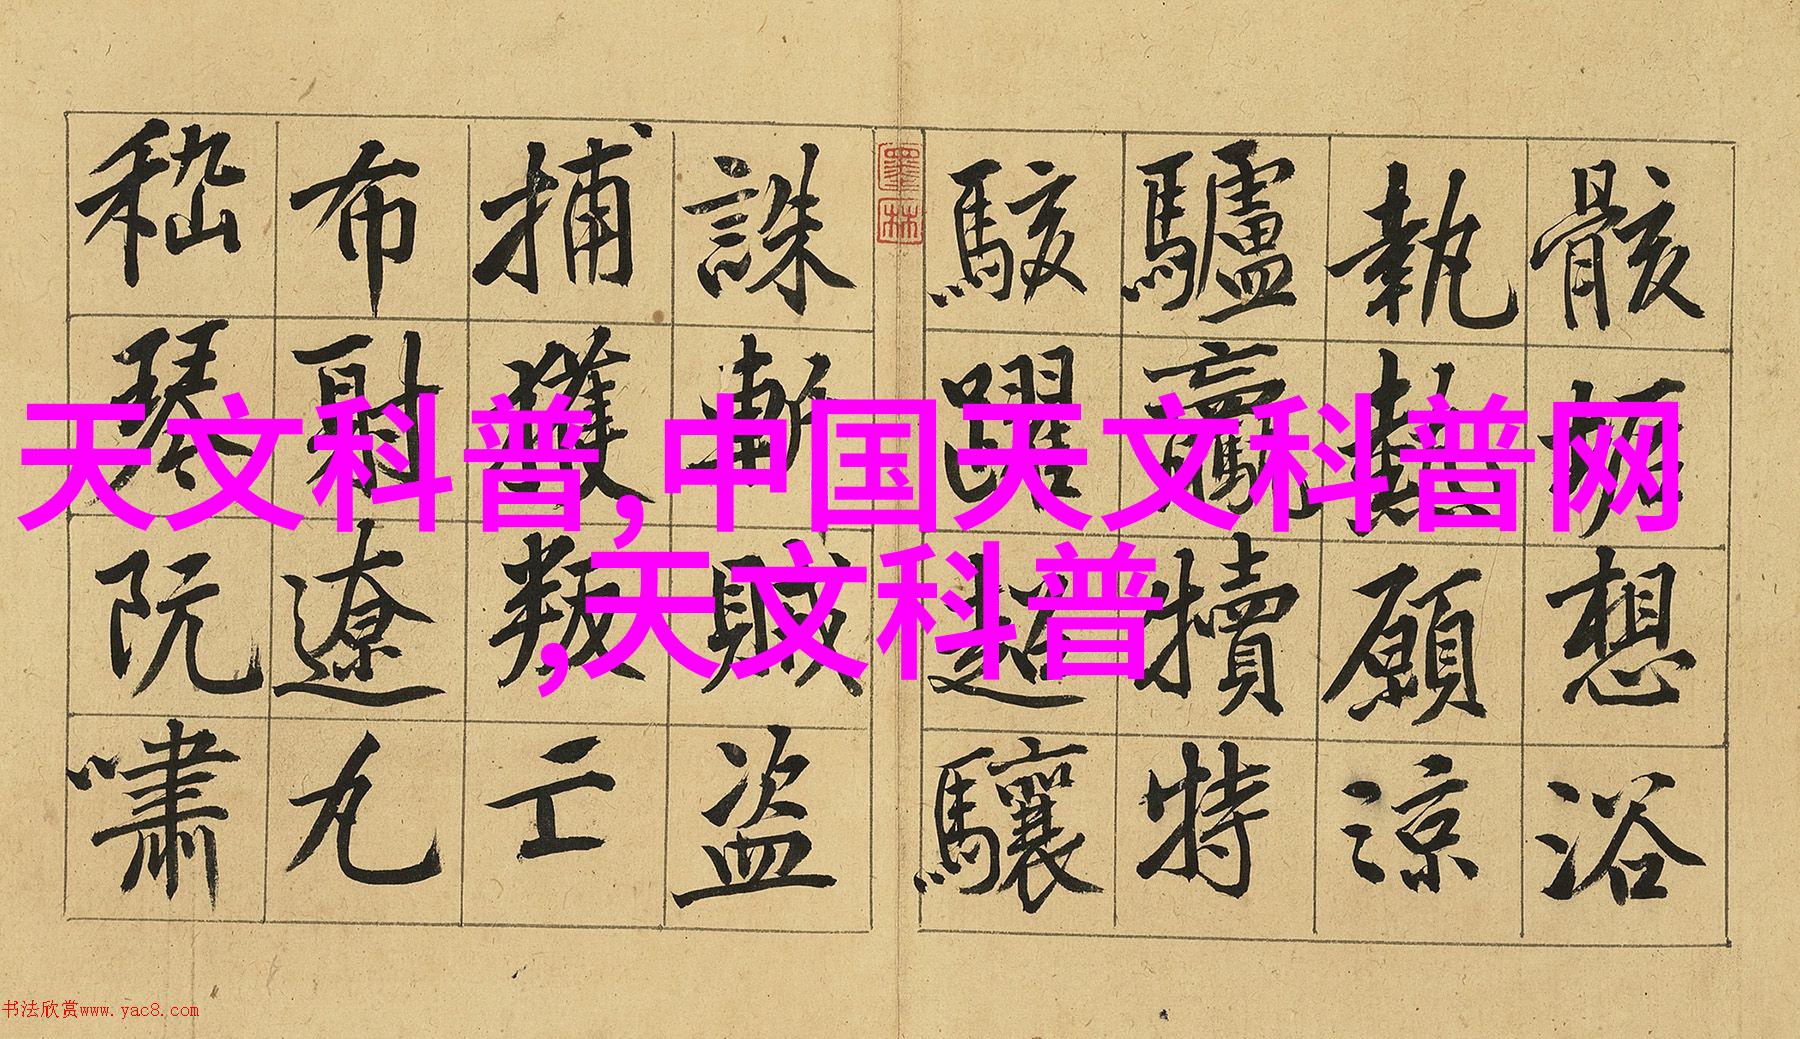 天文科普,中国天文科普网
,天文科普
骸垢想浴
執熱願涼
驢驘犢特
駭躍超驤
墨林
誅斬賊盜
捕獲叛亡
布射遼丸
嵇琴阮嘯
书法欣赏www.yac8.com